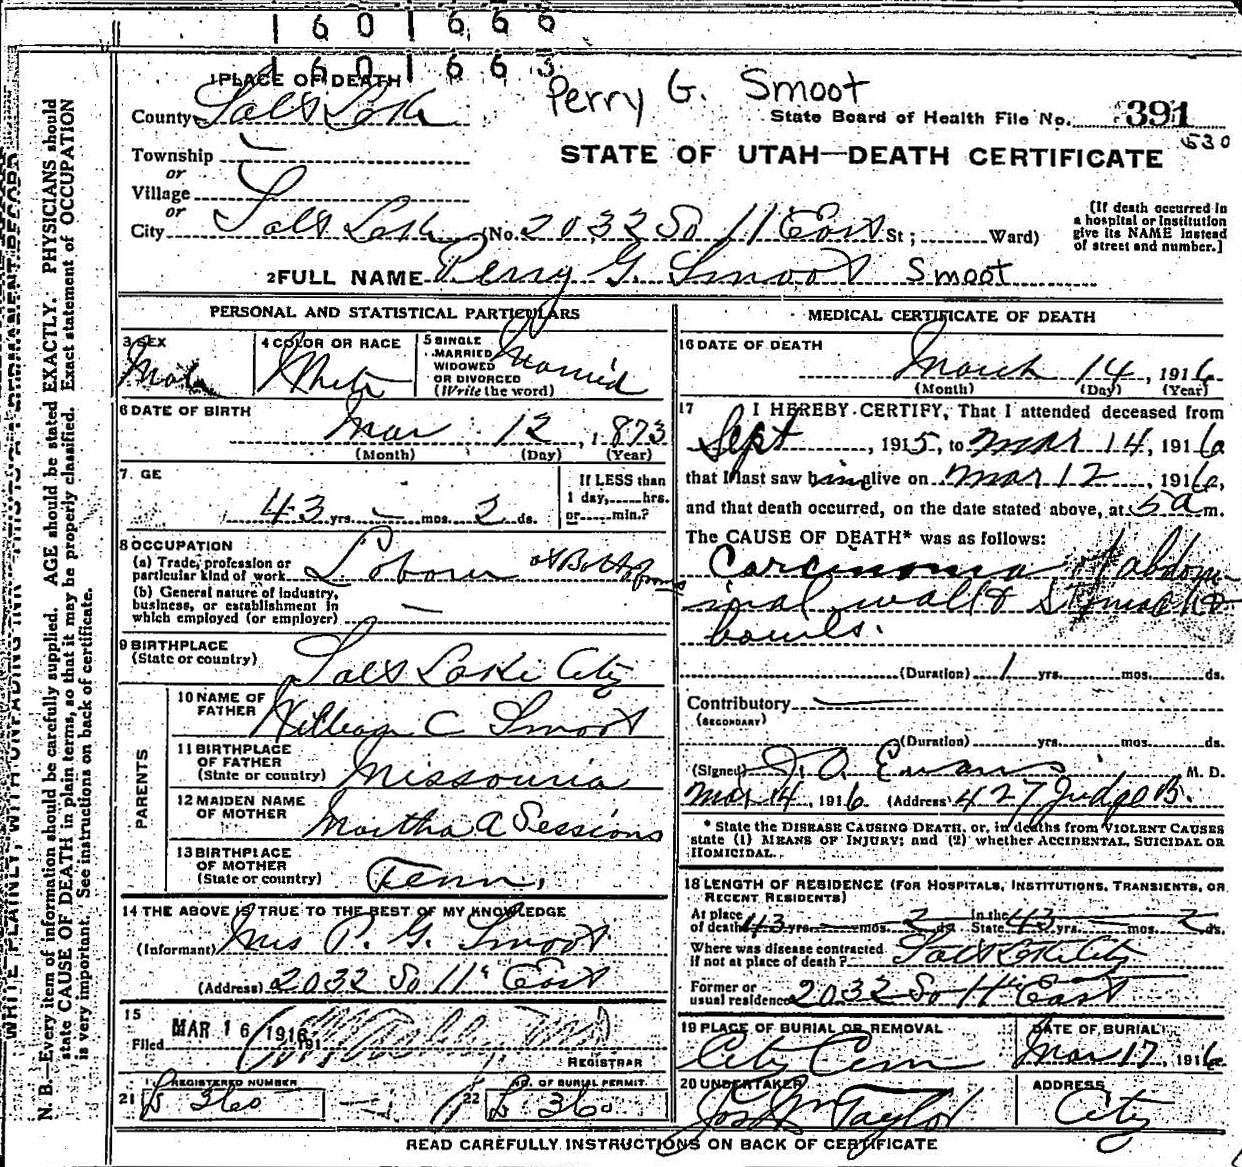 1 6 0 1 6 6 6
1 6 0 1 6 6 3
1 PLACE OF DEATH
Perry G. Smoot
County Salt Lake
State Board of Health File No. 391
530
Township —
or
STATE OF UTAH—DEATH CERTIFICATE
Village
or
City Salt Lake (No. 2032 So 11 East St; Ward)
[If death occurred in
a hospital or institution
give its NAME instead
of street and number.]
2 FULL NAME Perry G. Smoot Smoot
PERSONAL AND STATISTICAL PARTICULARS
3 SEX
Male
4 COLOR OR RACE
White
5 SINGLE
MARRIED
WIDOWED
OR DIVORCED
(Write the word)
Married
6 DATE OF BIRTH
Mar 12, 1873
(Month) (Day) (Year)
7. GE
43 yrs. — mos. 2 ds.
If LESS than
1 day, hrs.
or min.?
8 OCCUPATION
(a) Trade, profession or
particular kind of work Laborer at
(b) General nature of industry,
business, or establishment in
which employed (or employer) —
9 BIRTHPLACE
(State or country) Salt Lake City
PARENTS
10 NAME OF
FATHER William C Smoot
11 BIRTHPLACE
OF FATHER
(State or country) Missouria
12 MAIDEN NAME
OF MOTHER Martha A Sessions
13 BIRTHPLACE
OF MOTHER
(State or country) Tenn.
14 THE ABOVE IS TRUE TO THE BEST OF MY KNOWLEDGE
(Informant) Mrs P. G. Smoot
(Address) 2032 So 11" East
15
Filed MAR 16 1916 191
REGISTRAR
21 REGISTERED NUMBER
360
22 NO. OF BURIAL PERMIT
360
MEDICAL CERTIFICATE OF DEATH
16 DATE OF DEATH
March 14, 1916
(Month) (Day) (Year)
17 I HEREBY CERTIFY, That I attended deceased from
Sept, 1915, to Mar 14, 1916
that I last saw him alive on Mar 12, 1916,
and that death occurred, on the date stated above, at 5 a m.
The CAUSE OF DEATH* was as follows:
Carcinoma abdom-
inal wall & stomach &
bowils.
(Duration) 1 yrs. mos. ds.
Contributory —
(SECONDARY)
(Duration) yrs. mos. ds.
(Signed) J. O. Evans M. D.
Mar 14, 1916 (Address) 427 Judge B.
* State the DISEASE CAUSING DEATH, or, in deaths from VIOLENT CAUSES
state (1) MEANS OF INJURY; and (2) whether ACCIDENTAL, SUICIDAL OR
HOMICIDAL.
18 LENGTH OF RESIDENCE (FOR HOSPITALS, INSTITUTIONS, TRANSIENTS, OR
RECENT RESIDENTS)
At place of death 43 yrs. — mos. 2 ds. In the State 43 yrs. — mos. 2 ds.
Where was disease contracted
if not at place of death? Salt Lake City
Former or
usual residence 2032 So 11" East
19 PLACE OF BURIAL OR REMOVAL
City Cem
DATE OF BURIAL
Mar 17, 1916
20 UNDERTAKER
Jos Wm Taylor
ADDRESS
City
READ CAREFULLY INSTRUCTIONS ON BACK OF CERTIFICATE
WRITE PLAINLY, WITH UNFADING INK—THIS IS A PERMANENT RECORD
N. B.—Every item of information should be carefully supplied. AGE should be stated EXACTLY. PHYSICIANS should
state CAUSE OF DEATH in plain terms, so that it may be properly classified. Exact statement of OCCUPATION
is very important. See instructions on back of certificate.